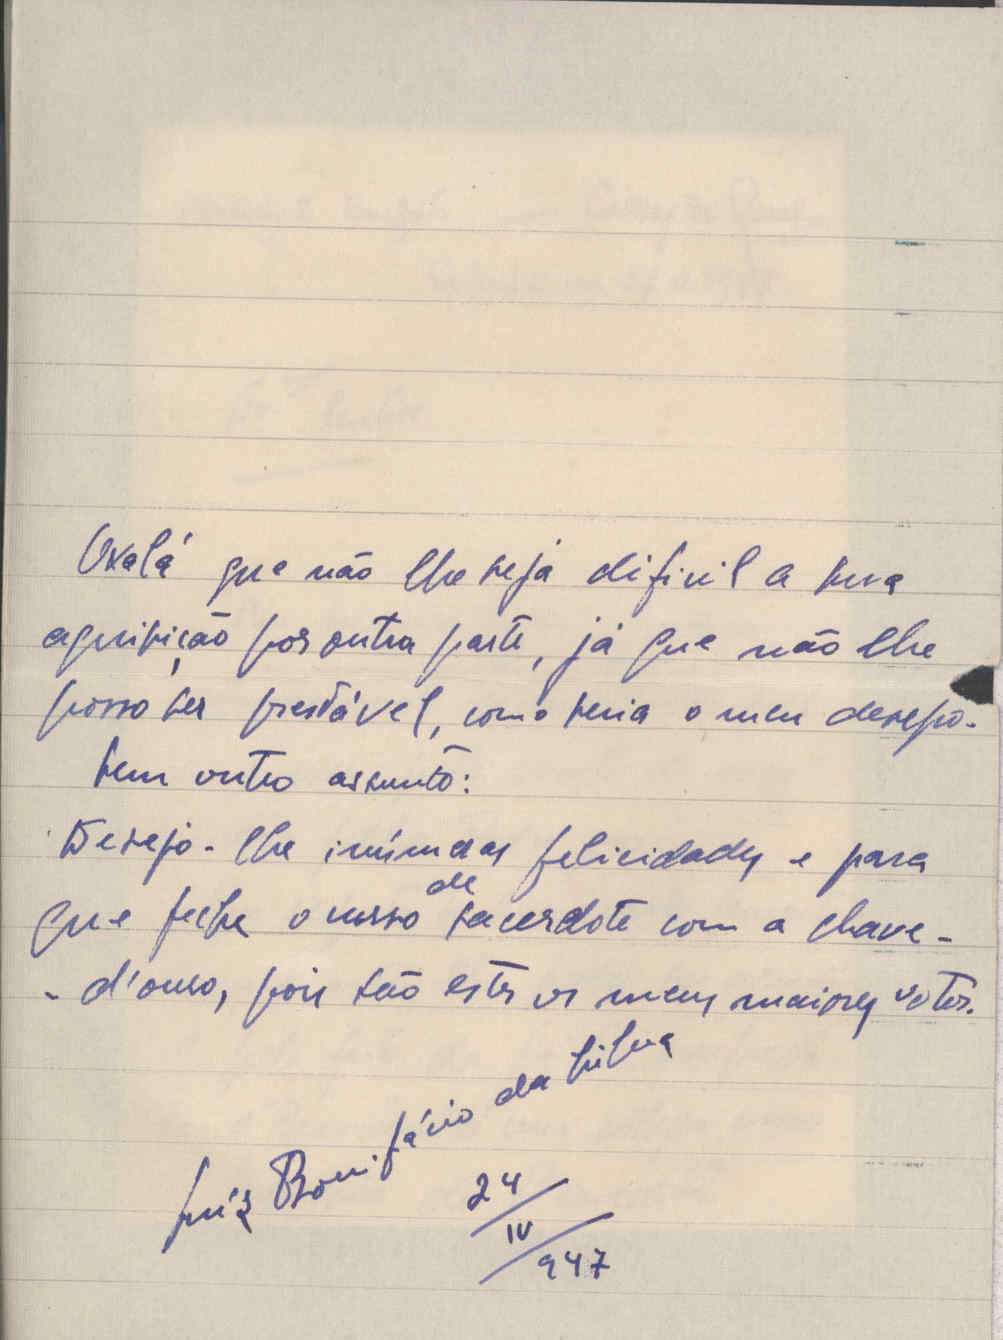 Oxalá que não lhe seja dificil a sua
aquisição por outra parte, já que não lhe
posso ser prestável, como seria o meu desejo.
Sem outro assunto:
Desejo-lhe inúmeras felicidades e para
que feche o curso de sacerdote com a chave-
-d'ouro, pois são estes os meus maiores votos.
Luiz Bonifácio da Silva
24
IV
947